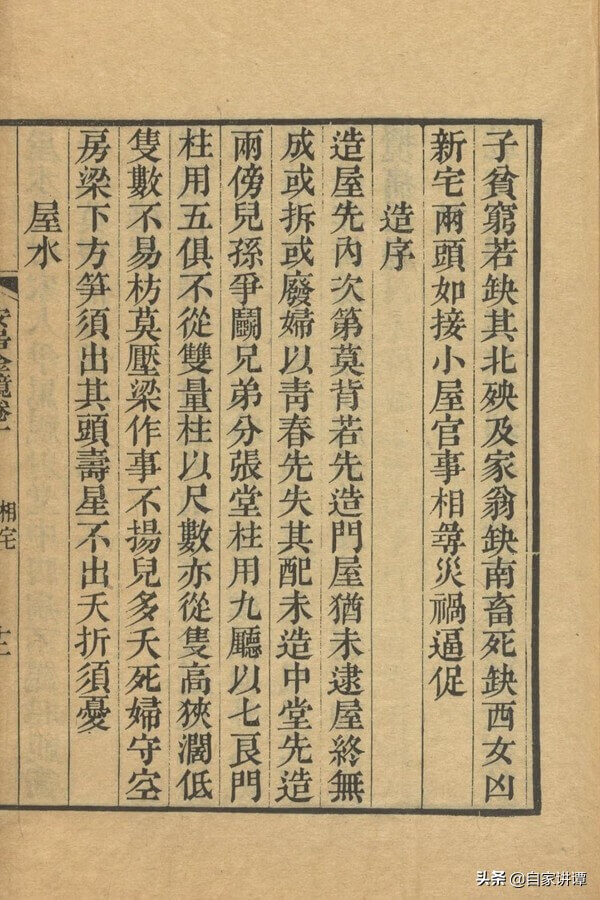 子貧窮若缺其北殃及家翁缺南畜死缺西女凶
新宅兩頭如接小屋官事相尋災禍逼促
造序
造屋先內次第莫背若先造門屋猶未逮屋終無
成或拆或廢婦以靑春先失其配未造中堂先造
兩傍兒孫爭鬭兄弟分張堂柱用九廳以七良門
柱用五俱不從雙量柱以尺數亦從隻高狹濶低
隻數不易枋莫壓梁作事不揚兒多夭死婦守空
房梁下方笋須出其頭壽星不出夭折須憂
屋水
安居金鏡卷一
相宅
十二
头条 @自家讲谭